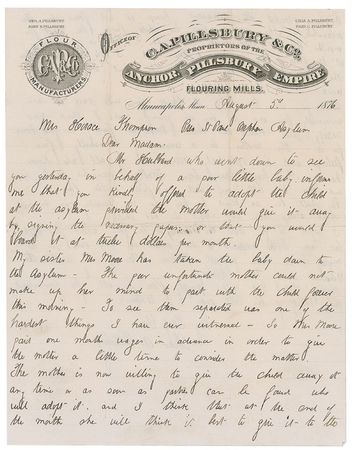 GEO. A. PILLSBURY.
JOHN S. PILLSBURY.
CHAS. A. PILLSBURY.
FRED C. PILLSBURY.
OFFICE OF
C.A. PILLSBURY & CO.
PROPRIETORS OF THE
ANCHOR, PILLSBURY EMPIRE
FLOURING MILLS.
FLOUR
C.A.P. & Co
MANUFACTURERS
Minneapolis, Minn August 3rd 1876
Mrs Horace Thompson Pres St Paul Orphan Asylum
Dear Madam.
Mr who went down to see
you yesterday in behalf of a poor little baby informs
me that you kindly offered to adopt the child
at the asylum provided the mother would give it away
by signing the necessary papers, or that you would
board it at twelve dollars per month.
My sister Mrs Moore has taken the baby down to
the Asylum - The poor unfortunate mother could not
make up her mind to part with the child forever
this morning - To see them separated was one of the
hardest things I have ever witnessed - So Mrs Moore
paid one months wages in advance in order to give
the mother a little time to consider the matter
The mother is now willing to give the child away at
any time or as soon as parties can be found who
will adopt it. and I think that at the end of
the month she will think it best to give it to the